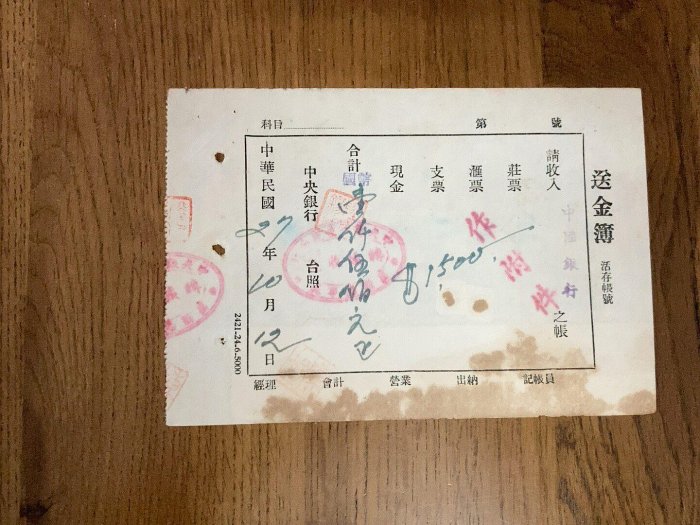 送金簿
活存帳號
科目
第 號
請收入中國銀行之帳
莊票
滙票
支票
現金
$1,500.
作附件
合計國幣壹仟伍佰元正
中央銀行 台照
中華民國27年10月12日
經理 會計 營業 出納 記帳員
2421-24-6-5000